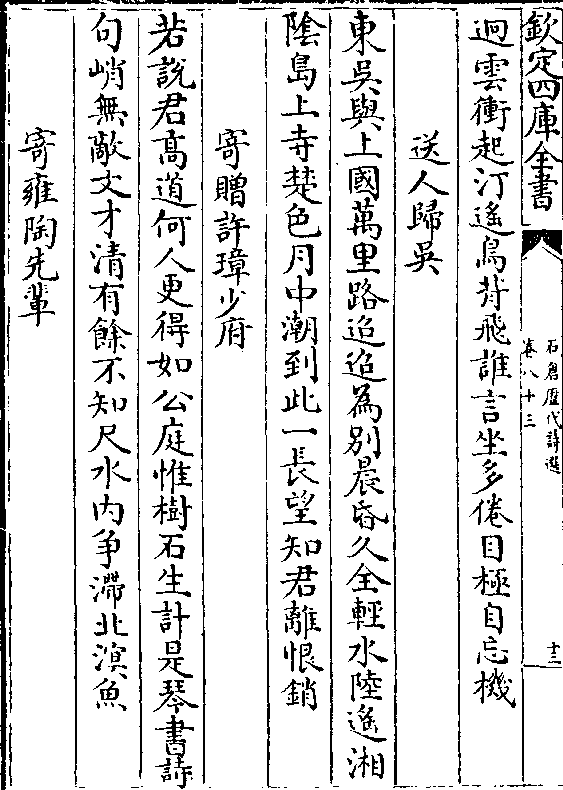 欽定四庫全書
石倉歷代詩選
卷八十三
十二
迥雲衝起汀遙鳥背飛誰言坐多倦目極自忘機
送人歸吳
東吳與上國萬里路迢迢為別晨昏久全輕水陸遙湘
陰島上寺楚色月中潮到此一長望知君離恨銷
寄贈許璋少府
若說君髙道何人更得如公庭惟樹石生計是琴書詩
句峭無敵文才清有餘不知尺水内爭滯北溟魚
寄雍陶先輩